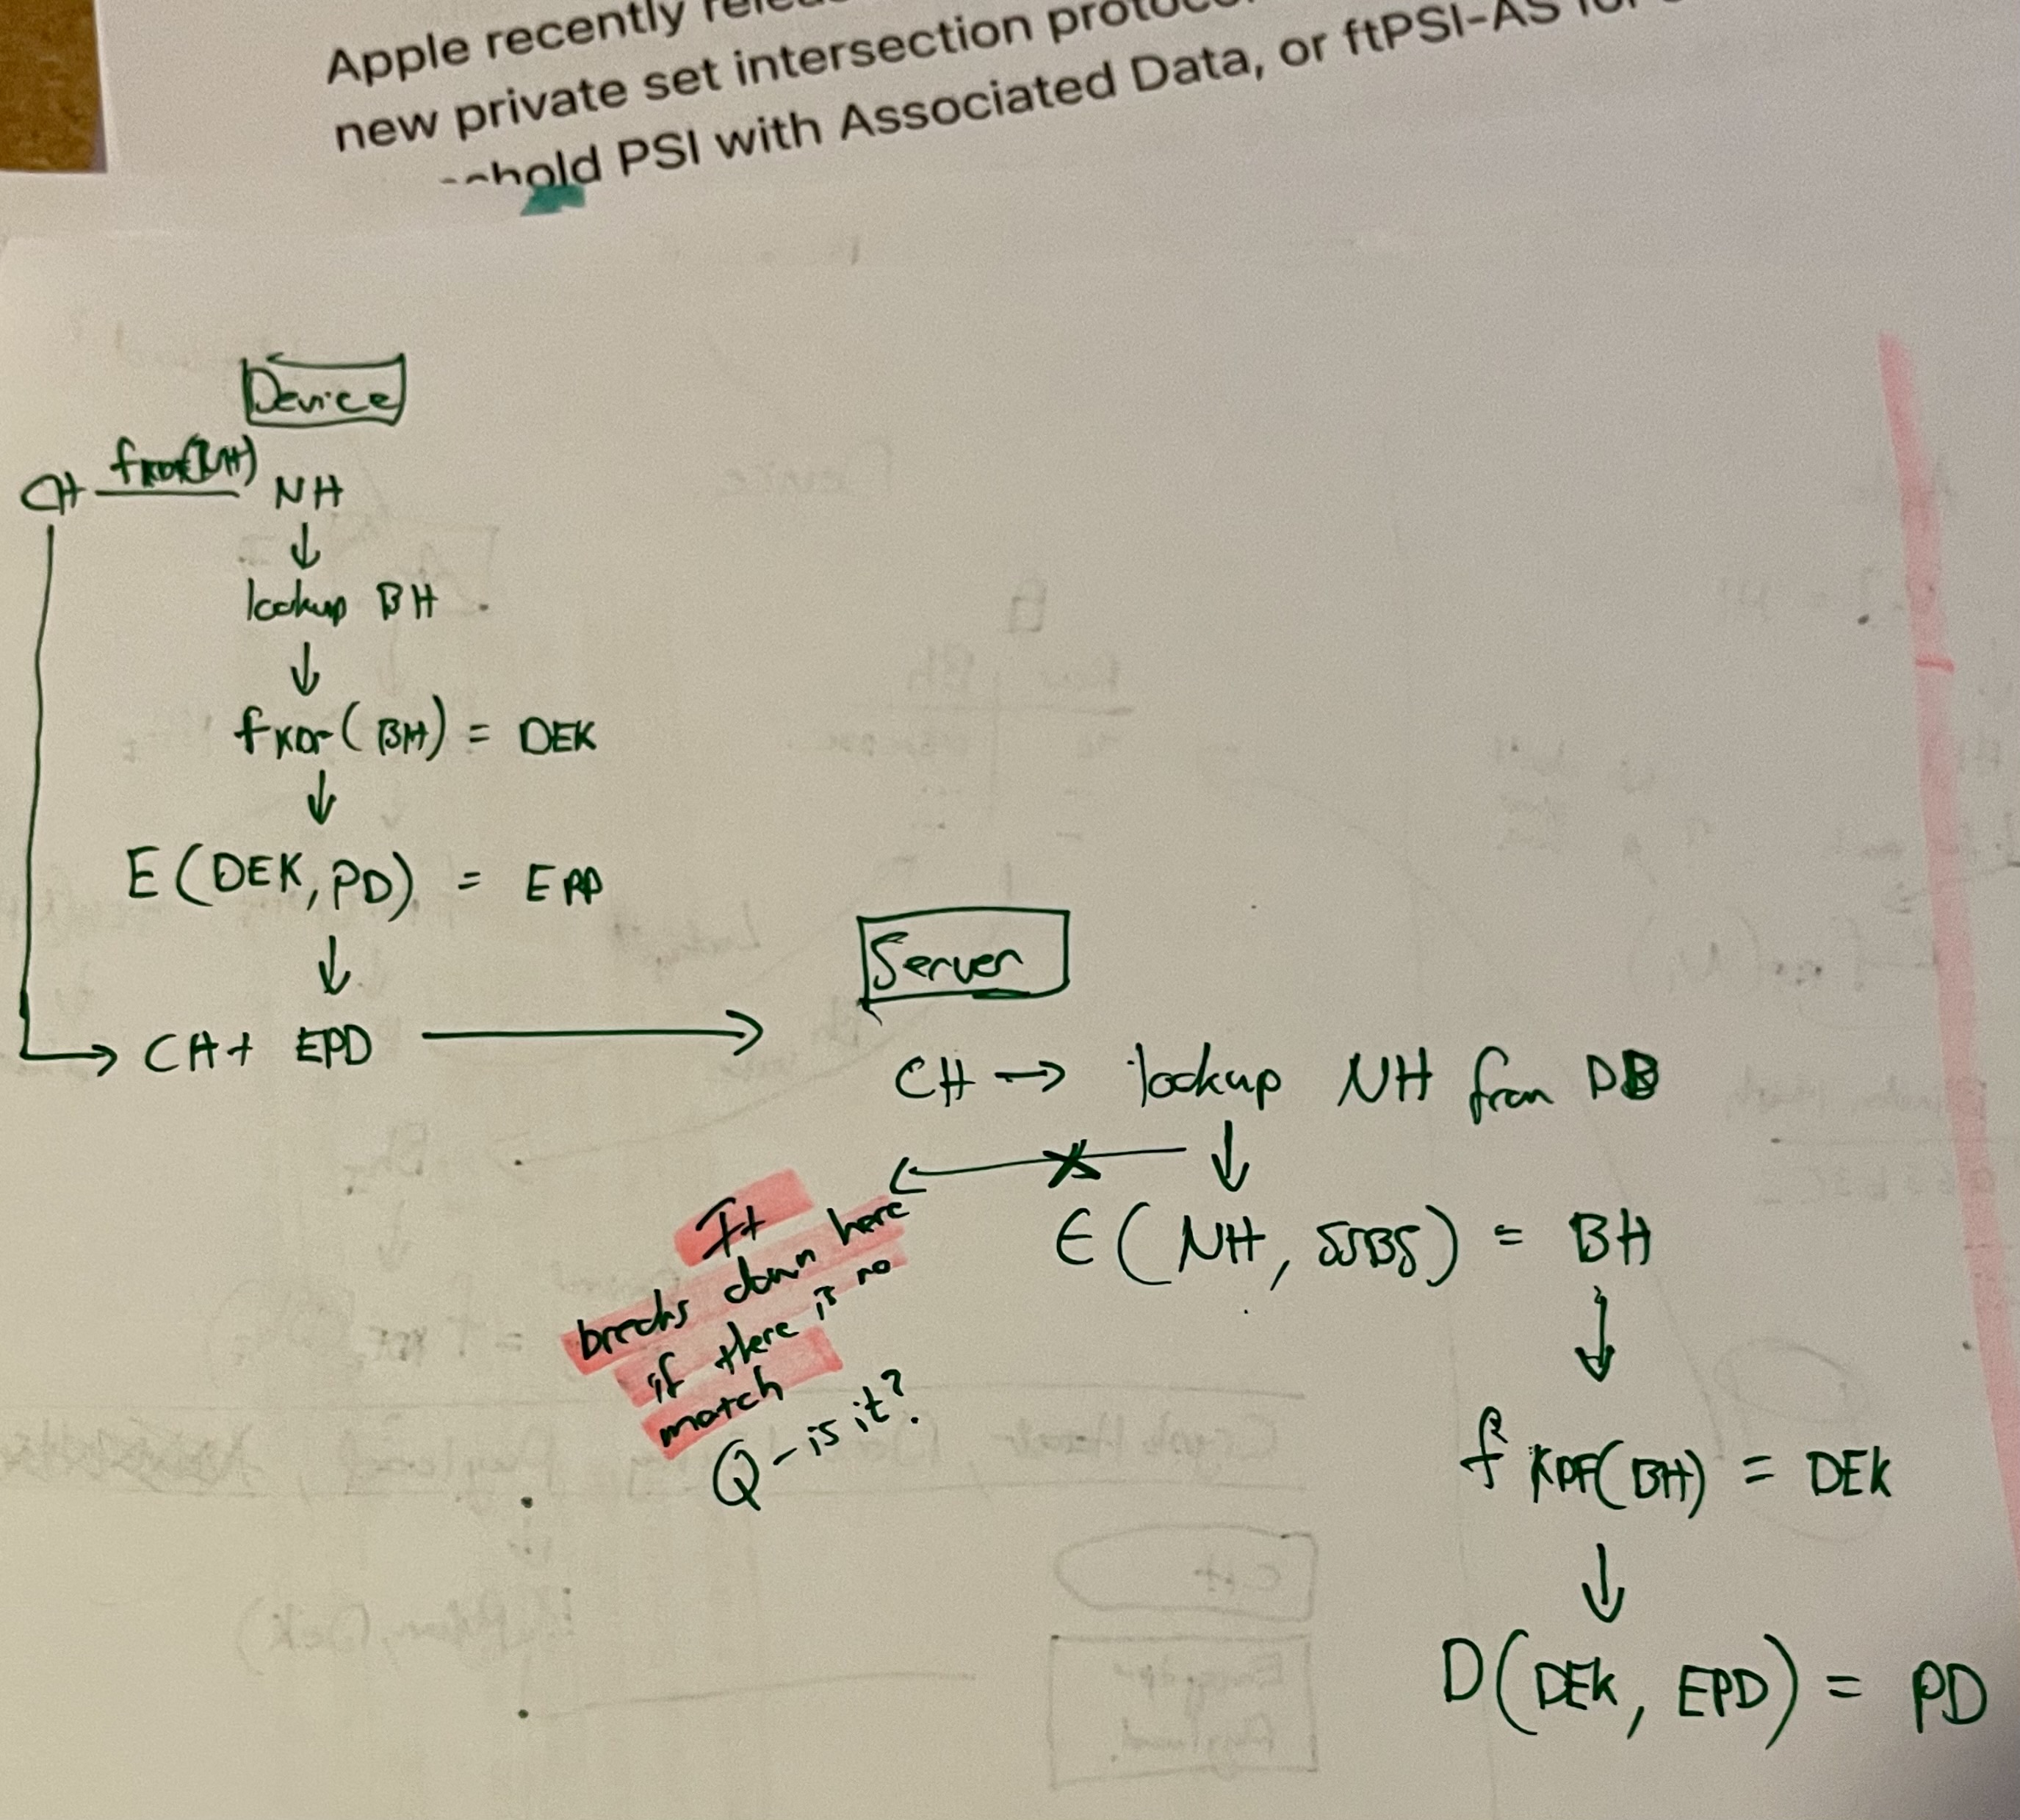 Apple recently
new private set intersection
hold PSI with Associated Data, or ftPSI-AS for
Device
CH NH
lookup BH
fKDF(BH) = DEK
E(DEK, PD) = EPD
CH + EPD
Server
CH → lookup NH from DB
It
breaks down here
if there is no
match
Q - is it?
E(NH, SSBS) = BH
f KDF(BH) = DEK
D(DEK, EPD) = PD